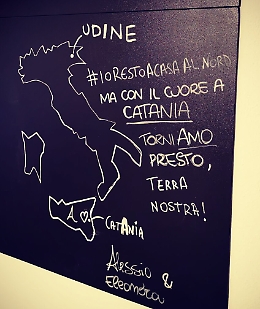 UDINE
#IORESTOACASA AL NORD
MA CON IL CUORE A
CATANIA
TORNIAMO
PRESTO,
TERRA
NOSTRA!
A
CATANIA
Alessio &
Eleonora